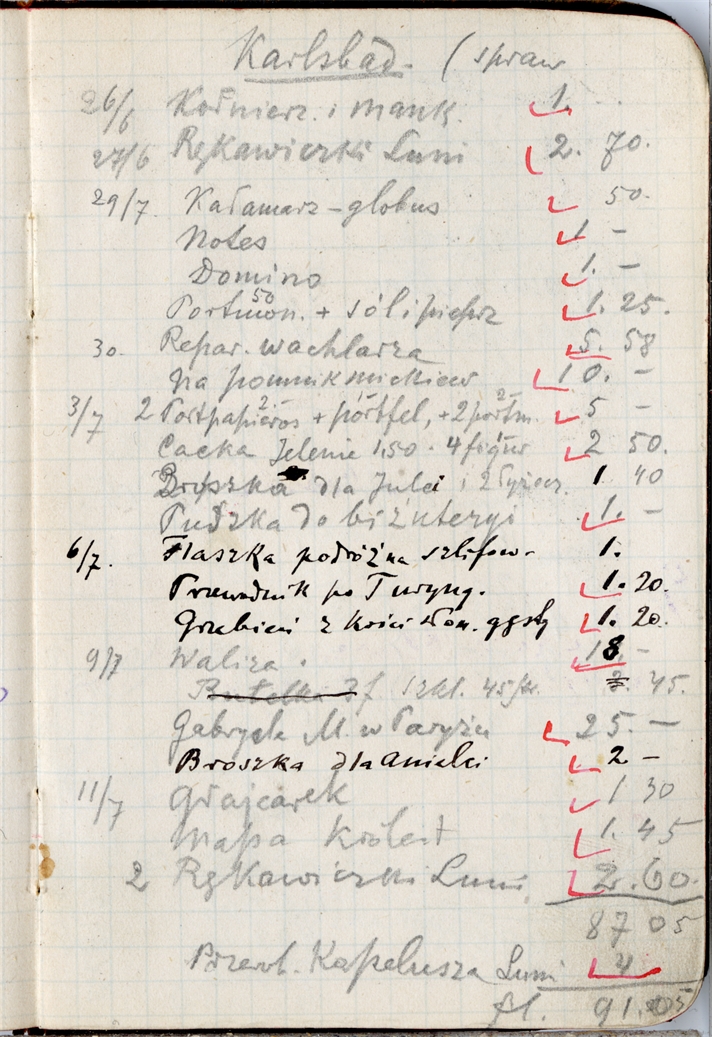 Karlsbad. (spraw
26/6 Kołnierz. i mank. 1.
27/6 Rękawiczki Luni 2. 70.
29/7 Kałamarz - globus 50.
Notes 1 -
Domino 1. -
50
Portmon. + sól i pieprz 1. 25.
30. Repar. wachlarza 5. 58
Na pomnik Mickiew 10. -
3/7 2 Portpapieros + portfel, + 2 portm. 5 -
Cacka Jelenie 1,50. 4 figur 2 50.
Broszka dla Julci i 2 łyżecz. 1 40
Puszka do biżuteryi 1. -
6/7. Flaszka podróżna szlifow. 1.
Przewodnik po Turyng. 1. 20.
Grzebień z kości słon. gęsty 1. 20.
9/7 Waliza. 18. -
Butelka szkl. 45. 45.
Gabryela M. w Paryżu 25. -
Broszka dla Anielci 2 -
11/7 Grajcarek 1 30
Mapa Królest 1. 45
2 Rękawiczki Luni 2. 60.
87 05
Przerob. Kapelusza Luni 4
fl. 91. 05